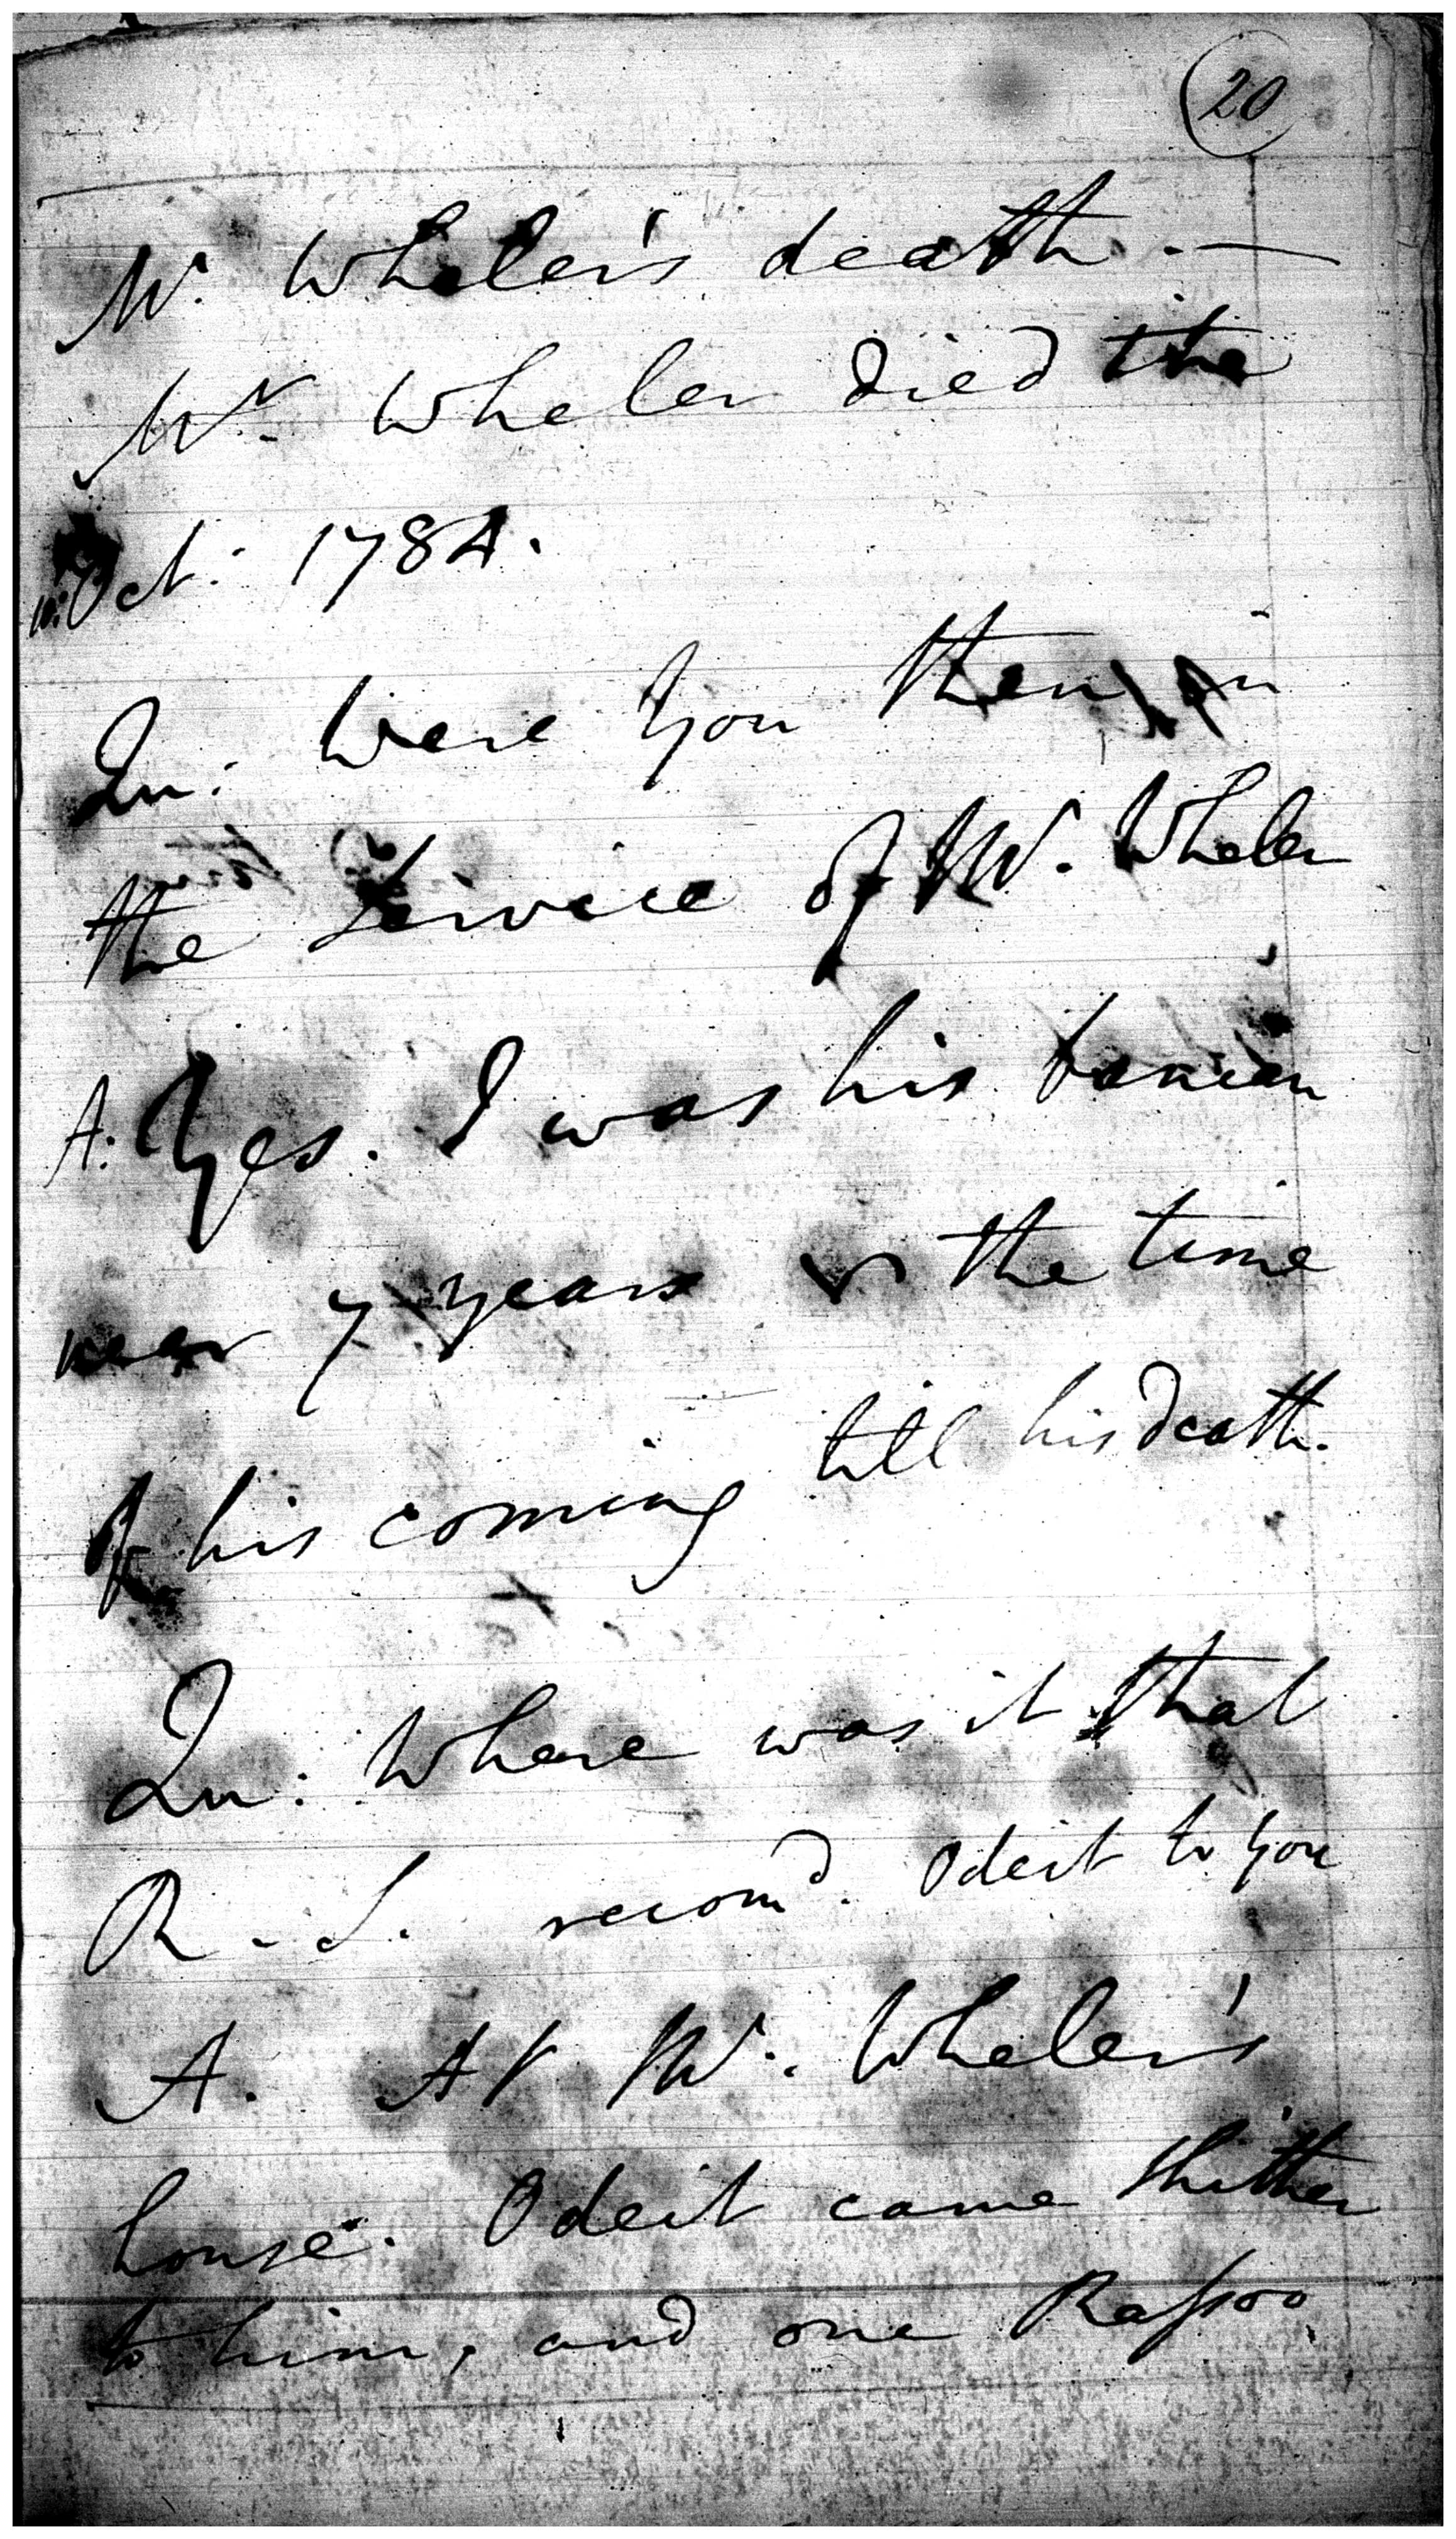 20
Mr. Wheler's death. —
Mr. Wheler died the
Oct: 1784.
Qu: Were you then in
the Service of Mr. Wheler
A: Yes. I was his banian
near 7 years the time
of his coming till his death.
Qu: Where was it that
R. S. recomd. Odeit to you
A. At Mr. Wheler's
house. Odeit came thither
to him, and one Rassoo